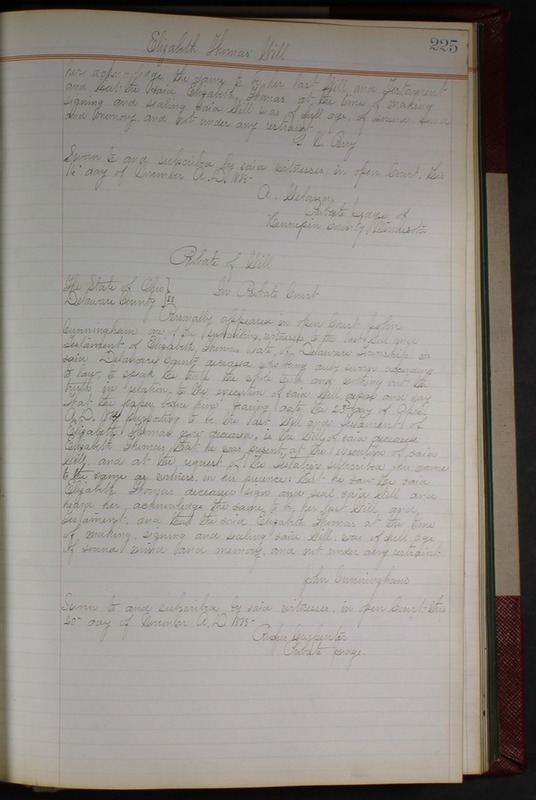 Elizabeth Thomas' Will
225
her acknowledge the same to be her last Will and Testament
and that the said Elizabeth Thomas at the time of making
signing and sealing said Will was of full age, of sound mind
and memory and not under any restraint.
Sworn to and subscribed by said witnesses, in open Court, this
16" day of December A.D. 1875
A.
Probate Judge of
Hennepin County Minnesota
Probate of Will
The State of Ohio }
Delaware County } SS In Probate Court
Personally appeared in open Court John
Cunningham one of the subscribing witnesses to the last Will and
Testament of Elizabeth Thomas late of Delaware Township in
said Delaware County deceased who being duly sworn according
to law to speak the truth the whole truth and nothing but the
truth in relation to the execution of said Will, deposes and says
that the paper before him bearing date the 23d day of April
A.D. purporting to be the last Will and Testament of
Elizabeth Thomas now deceased, is the Will of said deceased
Elizabeth Thomas that he was present at the execution of said
Will, and at the request of the testatrix subscribed his name
to the same as witness in her presence: that he saw the said
Elizabeth Thomas deceased sign and seal said Will and
heard her acknowledge the same to be her last Will and
testament, and that the said Elizabeth Thomas at the time
of making, signing and sealing said Will was of full age
of sound mind and memory, and not under any restraint.
John Cunningham
Sworn to and subscribed by said witness in open Court this
20" day of December A.D. 1875
Rufus Carpenter
Probate Judge.